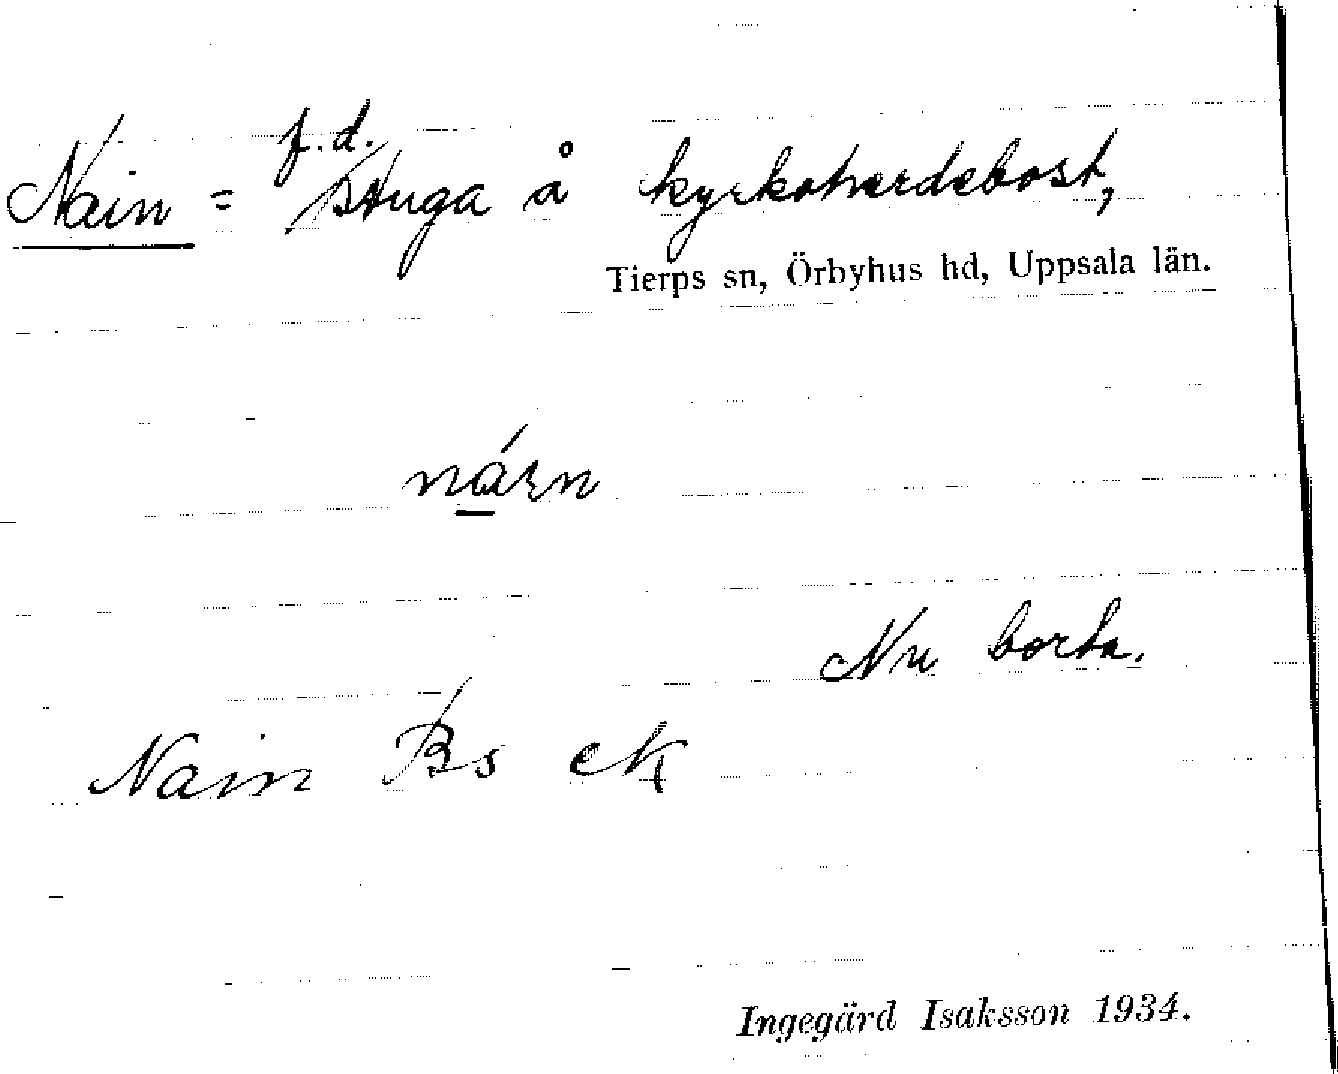 f.d.
Nain = stuga å kyrkoherdebost,
Tierps sn, Örbyhus hd, Uppsala län.
nárn
Nu borta.
Nain Bs ek
Ingegärd Isaksson 1934.